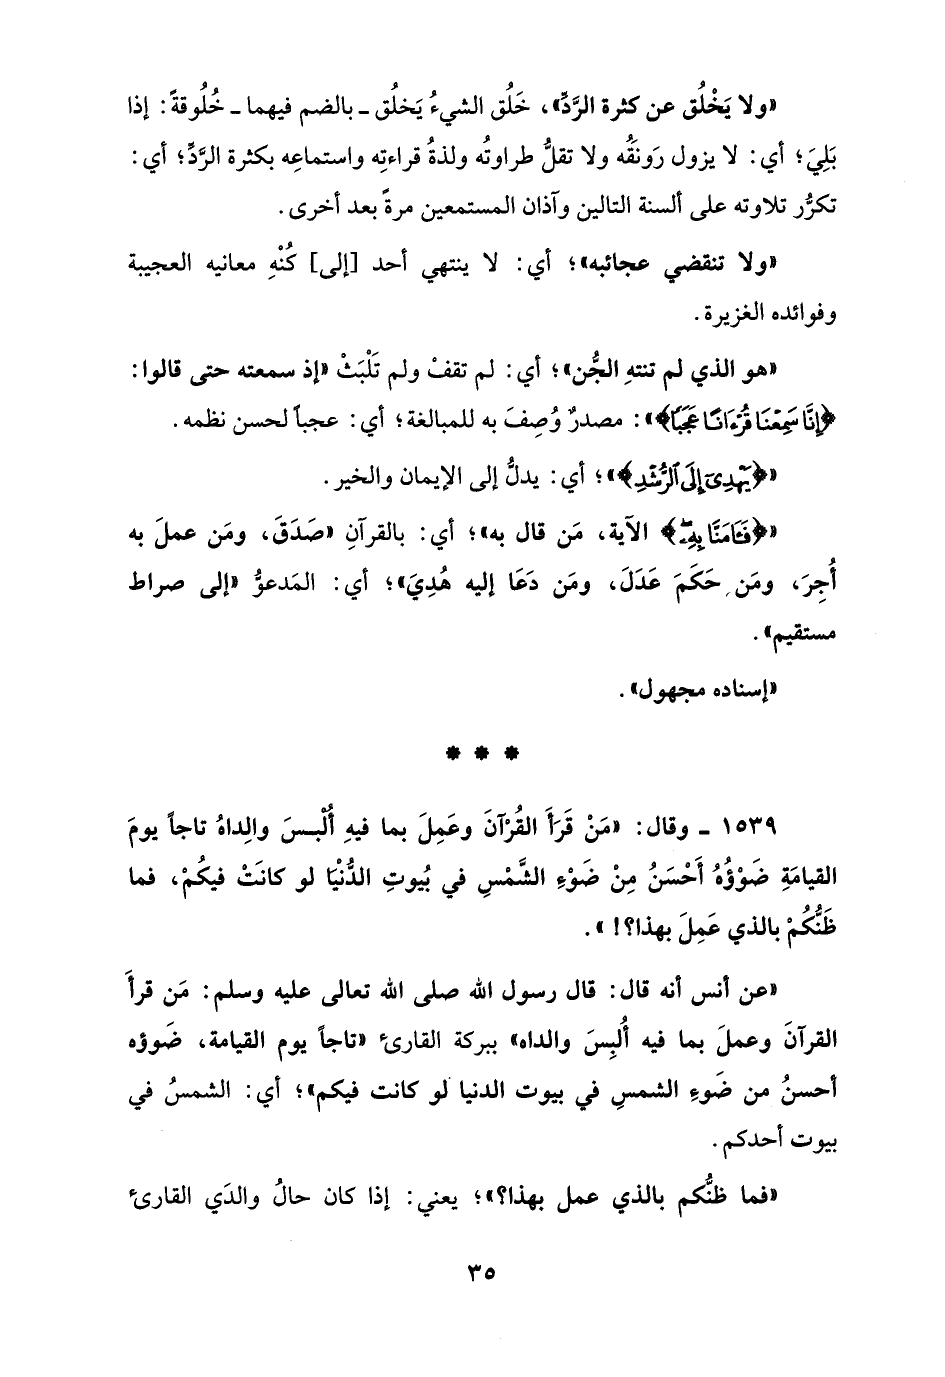 «ولا يَخْلُق عن كثرة الرَّدِّ»، خَلُق الشيءُ يَخلُق ـ بالضم فيهما ـ خُلُوقةً: إذا
بَلِيَ؛ أي: لا يزول رَونقُه ولا تقلُّ طراوتُه ولذةُ قراءتِه واستماعِه بكثرة الرَّدِّ؛ أي:
تكرُّر تلاوته على ألسنة التالين وآذان المستمعين مرةً بعد أخرى.
«ولا تنقضي عجائبه»؛ أي: لا ينتهي أحد [إلى] كُنْهِ معانيه العجيبة
وفوائده الغزيرة.
«هو الذي لم تنتهِ الجُّن»؛ أي: لم تقفْ ولم تَلْبَثْ «إذ سمعته حتى قالوا:
﴿إِنَّا سَمِعْنَا قُرْءَانًا عَجَبًا﴾»: مصدرٌ وُصِفَ به للمبالغة؛ أي: عجباً لحسن نظمه.
«﴿يَهْدِىٓ إِلَى ٱلرُّشْدِ﴾»؛ أي: يدلُّ إلى الإيمان والخير.
«﴿فَـَٔامَنَّا بِهِۦ﴾ الآية، مَن قال به»؛ أي: بالقرآنِ «صَدَقَ، ومَن عملَ به
أُجِرَ، ومَن حَكَمَ عَدَلَ، ومَن دَعَا إليه هُدِيَ»؛ أي: المَدعوُّ «إلى صراط
مستقيم».
«إسناده مجهول».
* * *
١٥٣٩ ـ وقال: «مَنْ قَرَأَ القُرْآنَ وعَمِلَ بما فيهِ أُلْبسَ والِداهُ تاجاً يومَ
القيامَةِ ضَوْؤُهُ أَحْسَنُ مِنْ ضَوْءِ الشَّمْسِ في بُيوتِ الدُّنْيَا لو كانَتْ فيكُمْ، فما
ظَنُّكُمْ بالذي عَمِلَ بهذا؟!».
«عن أنس أنه قال: قال رسول الله صلى الله تعالى عليه وسلم: مَن قرأَ
القرآنَ وعملَ بما فيه أُلبِسَ والداه» ببركة القارئ «تاجاً يوم القيامة، ضَووْه
أحسنُ من ضَوءِ الشمسِ في بيوت الدنيا لو كانت فيكم»؛ أي: الشمسُ في
بيوت أحدكم.
«فما ظنُّكم بالذي عمل بهذا؟»؛ يعني: إذا كان حالُ والدَي القارئ
٣٥